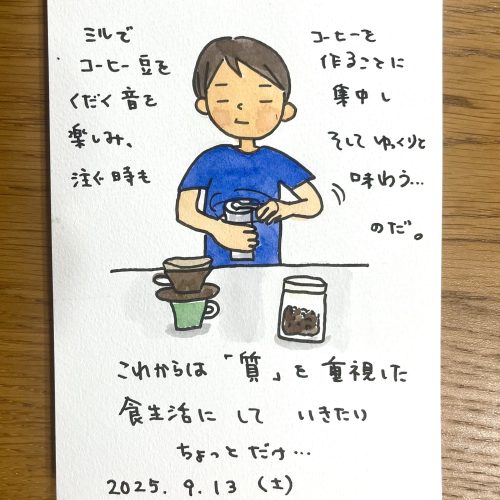 ミルで
コーヒー豆を
くだく音を
楽しみ、
注ぐ時も
コーヒーを
作ることに
集中し
そしてゆっくりと
味わう…
のだ。
これからは「質」を重視した
食生活にしていきたい
ちょっとだけ…
2025.9.13(土)